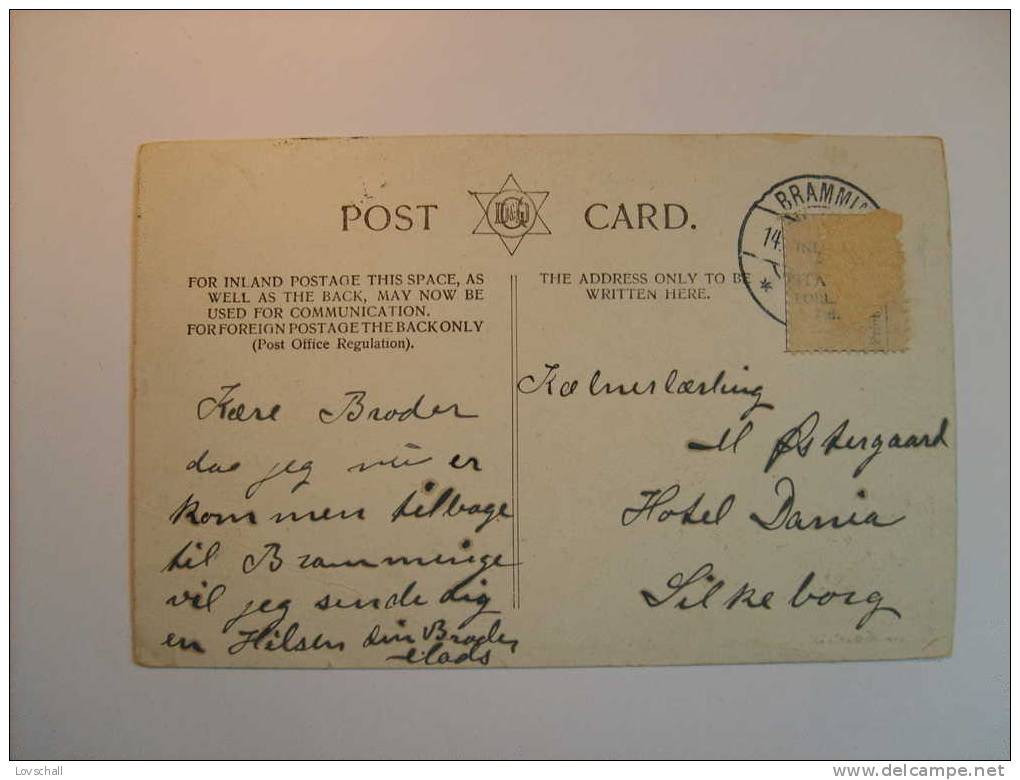 POST CARD.
D&G
BRAMMIN
14.
FOR INLAND POSTAGE THIS SPACE, AS
WELL AS THE BACK, MAY NOW BE
USED FOR COMMUNICATION.
FOR FOREIGN POSTAGE THE BACK ONLY
(Post Office Regulation).
THE ADDRESS ONLY TO BE
WRITTEN HERE.
Kære Broder
da jeg nu er
kommen tilbage
til Bramminge
vil jeg sende dig
en Hilsen din Broder
Mads
Kelnerlærling
M Østergaard
Hotel Dania
Silkeborg
Lovschall
delcampe.net